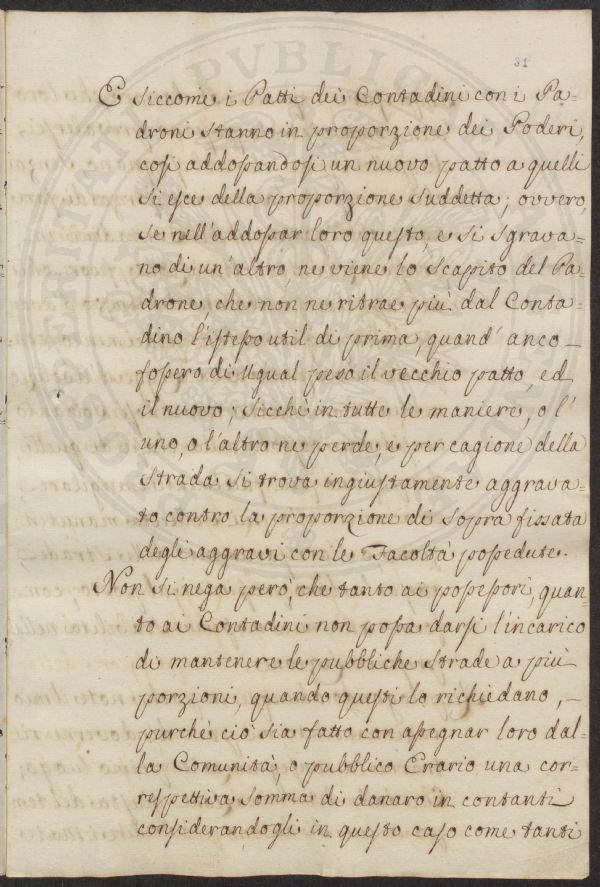 31
E siccome i Patti dei Contadini con i Pa=
droni stanno in proporzione dei Poderi,
così addossandosi un nuovo patto a quelli
si esce della proporzione suddetta; ovvero,
se nell'addossar loro questo, e si sgrava=
no di un'altro, ne viene lo scapito del Pa=
drone, che non ne ritrae più dal Conta=
dino l'istesso util di prima, quand'anco
fossero di ugual peso il vecchio patto, ed
il nuovo; sicchè in tutte le maniere, o l'
uno, o l'altro ne perde, e per cagione della
strada si trova ingiustamente aggrava=
to contro la proporzione di sopra fissata
degli aggravi con le Facoltà possedute.
Non si nega però, che tanto ai possessori, quan=
to ai Contadini non possa darsi l'incarico
di mantenere le pubbliche strade a più
porzioni, quando questi lo richiedano,
purchè ciò sia fatto con assegnar loro dal=
la Comunità, o pubblico Erario una cor=
respettiva somma di danaro in contanti
considerandogli in questo caso come tanti